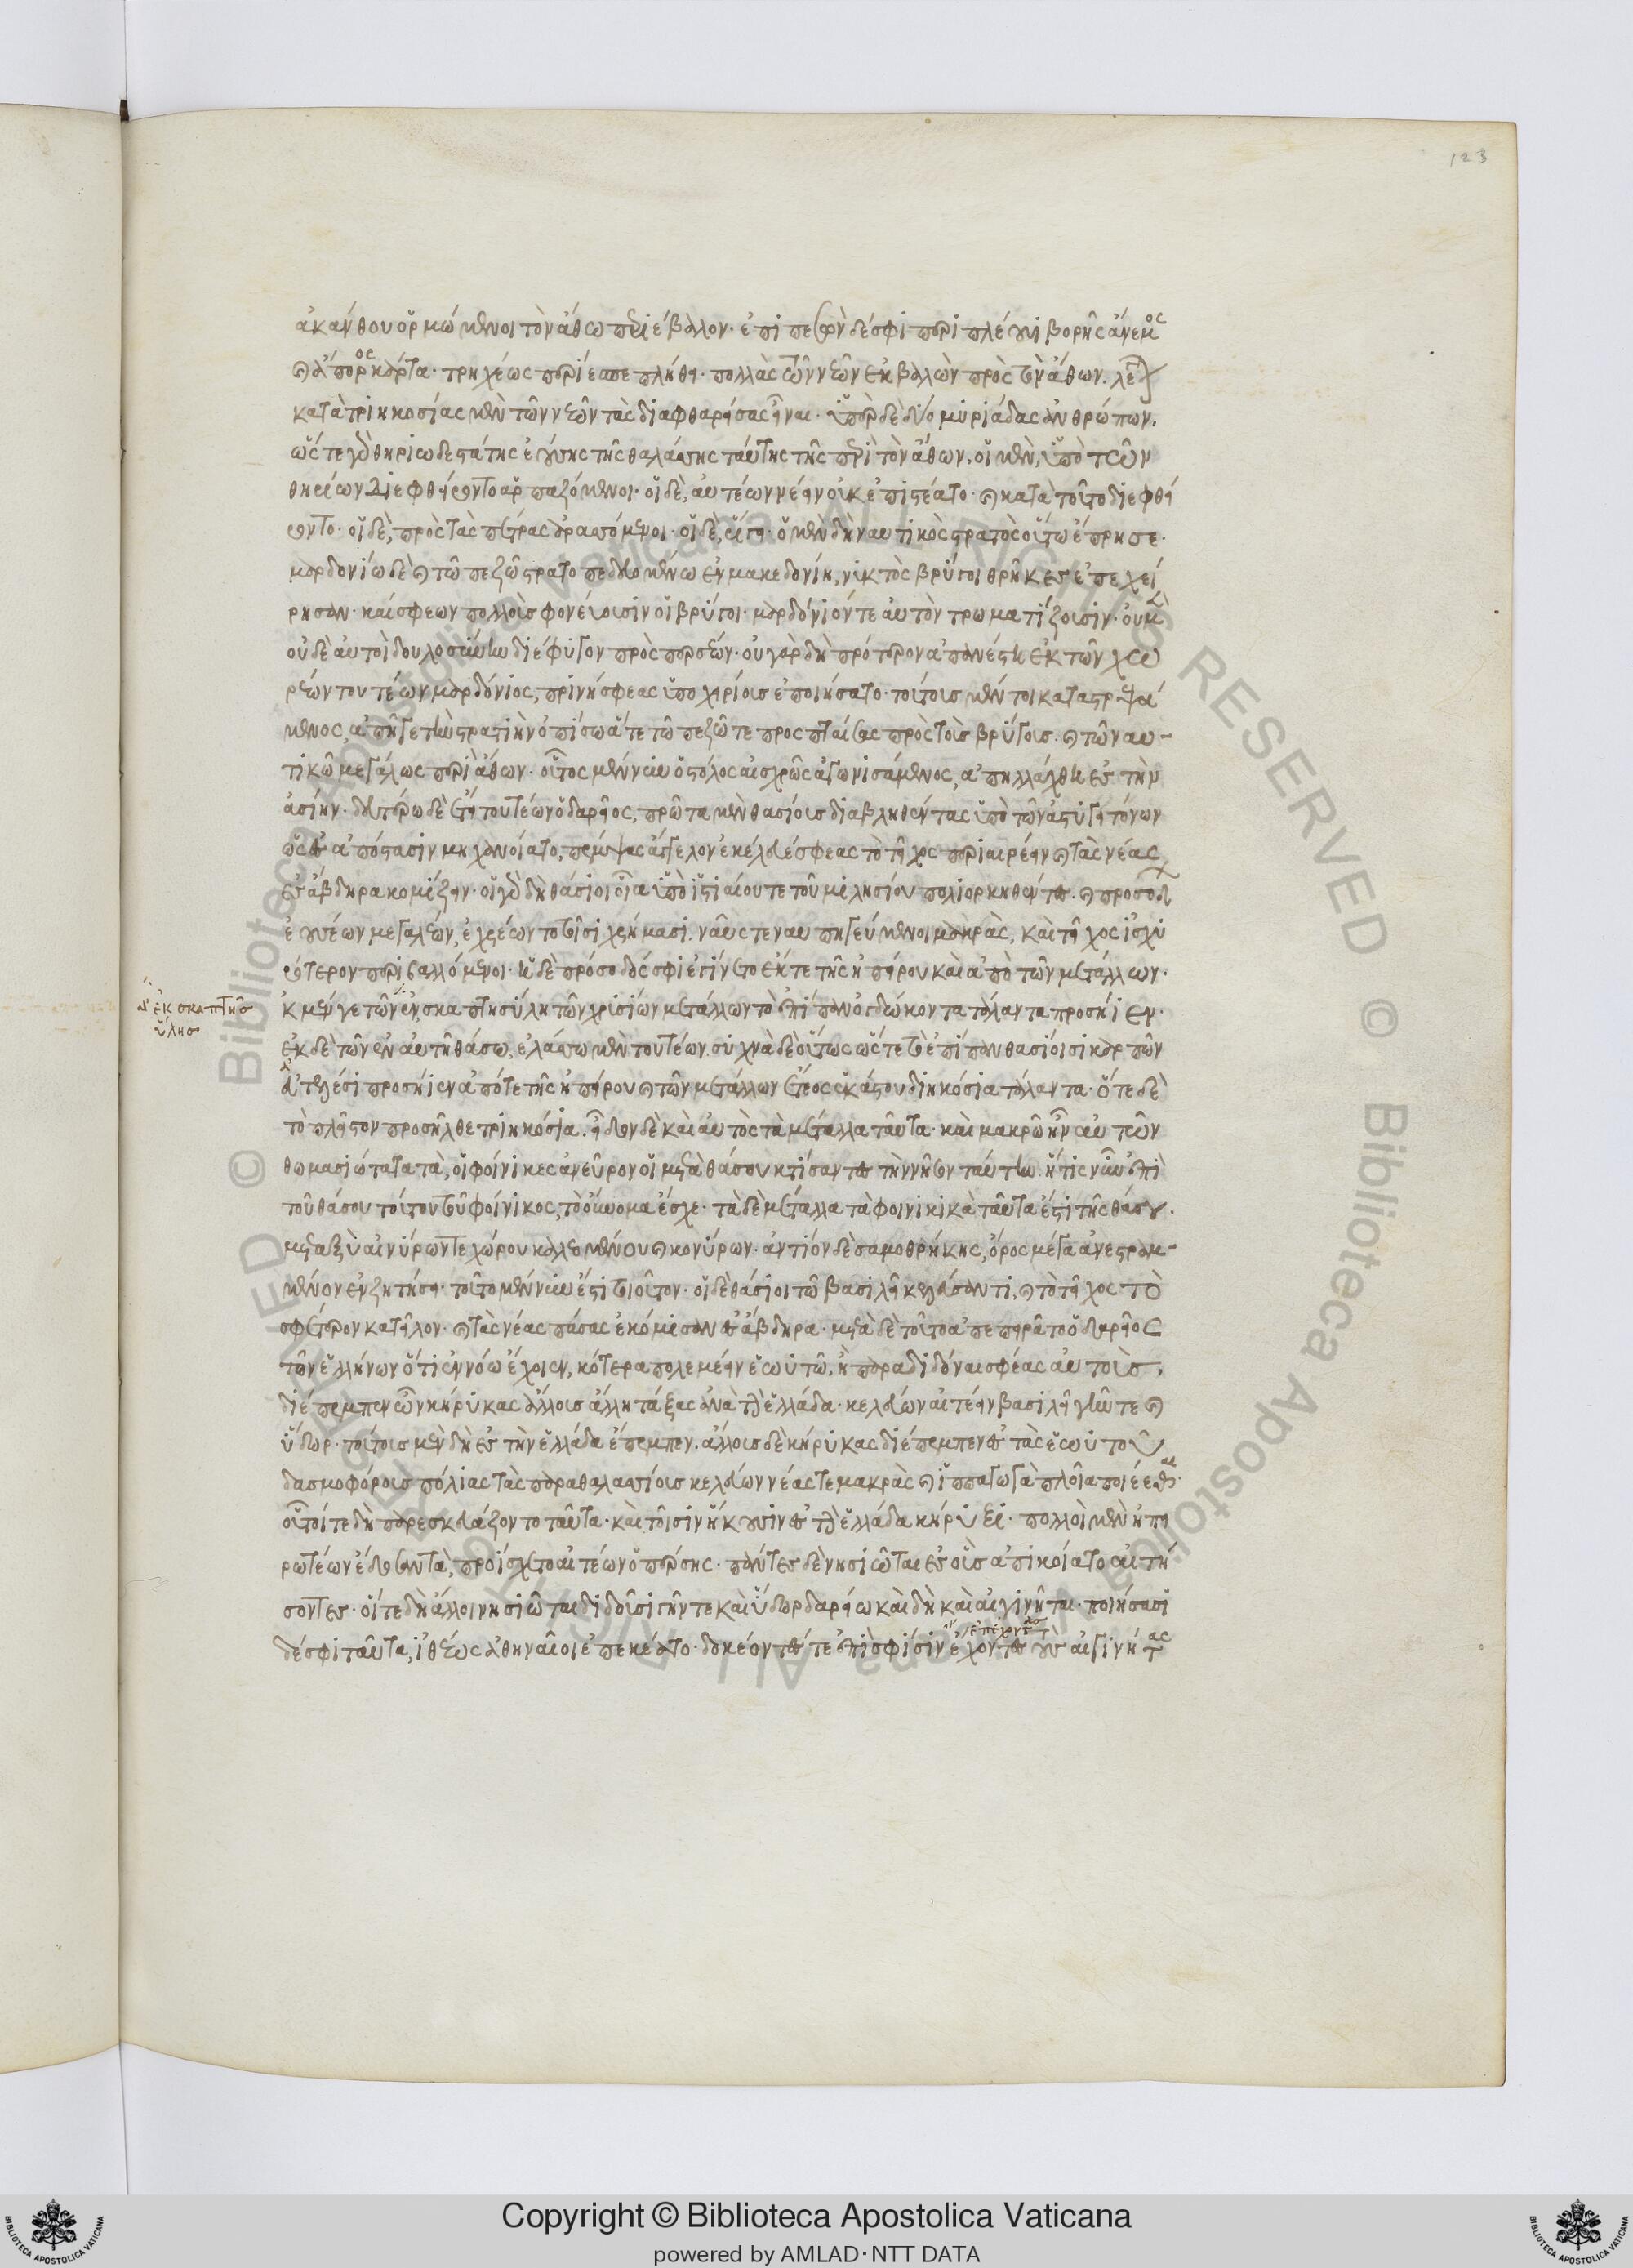 123
ἀκάνθου ὁρμώμενοι τὸν ἄθω περιέβαλλον· ἐπιπεσὼν δέ σφι περιπλέουσι βορῆς ἄνεμος
καὶ ἄπορος κάρτα· τρηχέως περιέσπε πλήθει· πολλὰς τῶν νεῶν ἐκβαλὼν πρὸς τὸν ἄθων. λέγεται
κατὰ τριηκοσίας μὲν τῶν νεῶν τὰς διαφθαρείσας εἶναι· ὑπὲρ δὲ δύο μυριάδας ἀνθρώπων.
ὥστε γὰρ θηριωδεστάτης ἐούσης τῆς θαλάσσης ταύτης τῆς περὶ τὸν ἄθων, οἱ μὲν, ὑπὸ τῶν
θηρίων διεφθείροντο ἁρπαζόμενοι· οἱ δὲ, αὐτέων νέειν οὐκ ἐπιστέατο· καὶ κατὰ τοῦτο διεφθεί
ροντο· οἱ δὲ, πρὸς τὰς πέτρας ἀρασσόμενοι· οἱ δὲ, ῥίγει· ὁ μὲν δὴ ναυτικὸς στρατὸς οὕτω ἔπρησσε·
μαρδονίω δὲ καὶ τῶ πεζῶ στρατοπεδευομένω ἐν μακεδονίη, νυκτὸς βρύγοι θρήικες ἐπεχεί
ρησαν· καί σφεων πολλοὺς φονεύουσιν οἱ βρύγοι· μαρδόνιόν τε αὐτὸν τρωματίζουσιν· οὐ μὲν
οὐδὲ αὐτοὶ δουλοσύνην διέφυγον πρὸς περσέων· οὐ γὰρ δὴ πρότερον ἀπανέστη ἐκ τῶν χω
ρέων τουτέων μαρδόνιος, πρὶν ἤ σφεας ὑποχειρίους ἐποιήσατο· τούτους μέν τοι καταστρεψά
μενος, ἀπῆγε τὴν στρατιὴν ὀπίσω ἅτε τῶ πεζῶ τε προσπταίσας πρὸς τοὺς βρύγους. καὶ τῶ ναυ-
τικῶ μεγάλως περὶ ἄθων· οὗτος μὲν νῦν ὁ στόλος αἰσχρῶς ἀγωνισάμενος, ἀπηλλάχθη ἐς τὴν
ἀσίην· δευτέρω δὲ ἔτει τουτέων ὁ δαρεῖος, πρῶτα μὲν θασίους διαβληθέντας ὑπὸ τῶν ἀστυγειτόνων
ὡς ἀπόστασιν μηχανοίατο, πέμψας ἄγγελον ἐκέλευέ σφεας τὸ τεῖχος περιαιρέειν καὶ τὰς νέας
ἐς ἄβδηρα κομίζειν· οἱ γὰρ δὴ θάσιοι οἷα ὑπὸ ἱστιαίου τε τοῦ μιλησίου πολιορκηθέντες. καὶ προσόδων
ἐουσέων μεγαλέων, ἐχρέωντο τοῖσι χρήμασι. ναῦς τε ναυπηγεύμενοι μακρὰς, καὶ τεῖχος ἰσχυ
ρότερον περιβαλλόμενοι· ἡ δὲ πρόσοδός σφι ἐγίνετο ἔκ τε τῆς ἠπείρου καὶ ἀπὸ τῶν μετάλλων·
ἐκ μέν γε τῶν ἐν σκαπτησύλη τῶν χρυσέων μετάλλων τὸ ἐπίπαν ὀγδώκοντα τάλαντα προσήιεν·
ἐκ δὲ τῶν ἐν αὐτῆ θάσω, ἐλάσσω μὲν τουτέων. συχνὰ δὲ οὕτως ὥστε τὸ ἐπίπαν θασίοισι καρπῶν
ἀτελέσι προσήιεν ἀπό τε τῆς ἠπείρου καὶ τῶν μετάλλων ἔτεος ἑκάστου διηκόσια τάλαντα· ὅτε δὲ
τὸ πλεῖστον προσῆλθε τριηκόσια. εἶδον δὲ καὶ αὐτὸς τὰ μέταλλα ταῦτα· καὶ μακρῶ ἦν αὐτῶν
θωμασιώτατα τὰ, οἱ φοίνικες ἀνεῦρον οἱ μετὰ θάσου κτίσαντες τὴν νῆσον ταύτην. ἥτις νῦν ἐπὶ
τοῦ θάσου τούτου τοῦ φοίνικος, τὸ οὔνομα ἔσχε· τὰ δὲ μέταλλα τὰ φοινικικὰ ταῦτα ἐστὶ τῆς θάσου.
μεταξὺ αἰνύρων τε χώρου καλεομένου καὶ κονύρων· ἀντίον δὲ σαμοθρήικης, ὄρος μέγα ἀνεστραμ-
μένον ἐν ζητήσει· τοῦτο μέν νῦν ἐστὶ τοιοῦτον· οἱ δὲ θάσιοι τῶ βασιλεῖ κελεύσαντι, καὶ τὸ τεῖχος τὸ
σφέτερον κατεῖλον· καὶ τὰς νέας πάσας ἐκόμισαν ἐς ἄβδηρα· μετὰ δὲ τοῦτο ἀπεπειρᾶτο ὁ δαρεῖος
τῶν ἑλλήνων ὅτι ἐν νόω ἔχοιεν, κότερα πολεμέειν ἑωυτῶ, ἢ παραδιδόναι σφέας αὐτούς·
διέπεμπεν ὦν κήρυκας ἄλλους ἄλλη τάξας ἀνὰ τὴν ἑλλάδα· κελεύων αἰτέειν βασιλεῖ γῆν τε καὶ
ὕδωρ· τούτους μὲν δὴ ἐς τὴν ἑλλάδα ἔπεμπεν. ἄλλους δὲ κήρυκας διέπεμπεν ἐς τὰς ἑωυτοῦ
δασμοφόρους πόλιας τὰς παραθαλασσίους κελεύων νέας τε μακρὰς καὶ ἱππαγωγὰ πλοῖα ποιέεσθαι·
οὗτοί τε δὴ παρεσκευάζοντο ταῦτα· καὶ τοῖσιν ἥκουσιν ἐς τὴν ἑλλάδα κήρυξι· πολλοὶ μὲν ἠπει
ρωτέων ἔδοσαν τὰ, προΐσχετο αἰτέων ὁ πέρσης· πάντες δὲ νησιῶται ἐς οὓς ἀπικοίατο αἰτή
σοντες· οἵ τε δὴ ἄλλοι νησιῶται διδοῦσι γῆν τε καὶ ὕδωρ δαρείω καὶ δὴ καὶ αἰγινῆται· ποιήσασι
δέ σφι ταῦτα, ἰθέως ἀθηναῖοι ἐπεκέατο· δοκέοντές τε ἐπὶ σφίσιν ἔχοντες τοὺς αἰγινήτας
ἐπέχοντας
ἐκ σκαπτῆς
ὕλης
© Biblioteca Apostolica Vaticana ALL RIGHTS RESERVED © Biblioteca Apostolica Vaticana
Copyright © Biblioteca Apostolica Vaticana
powered by AMLAD·NTT DATA
BIBLIOTECA APOSTOLICA VATICANA
BIBLIOTECA APOSTOLICA VATICANA